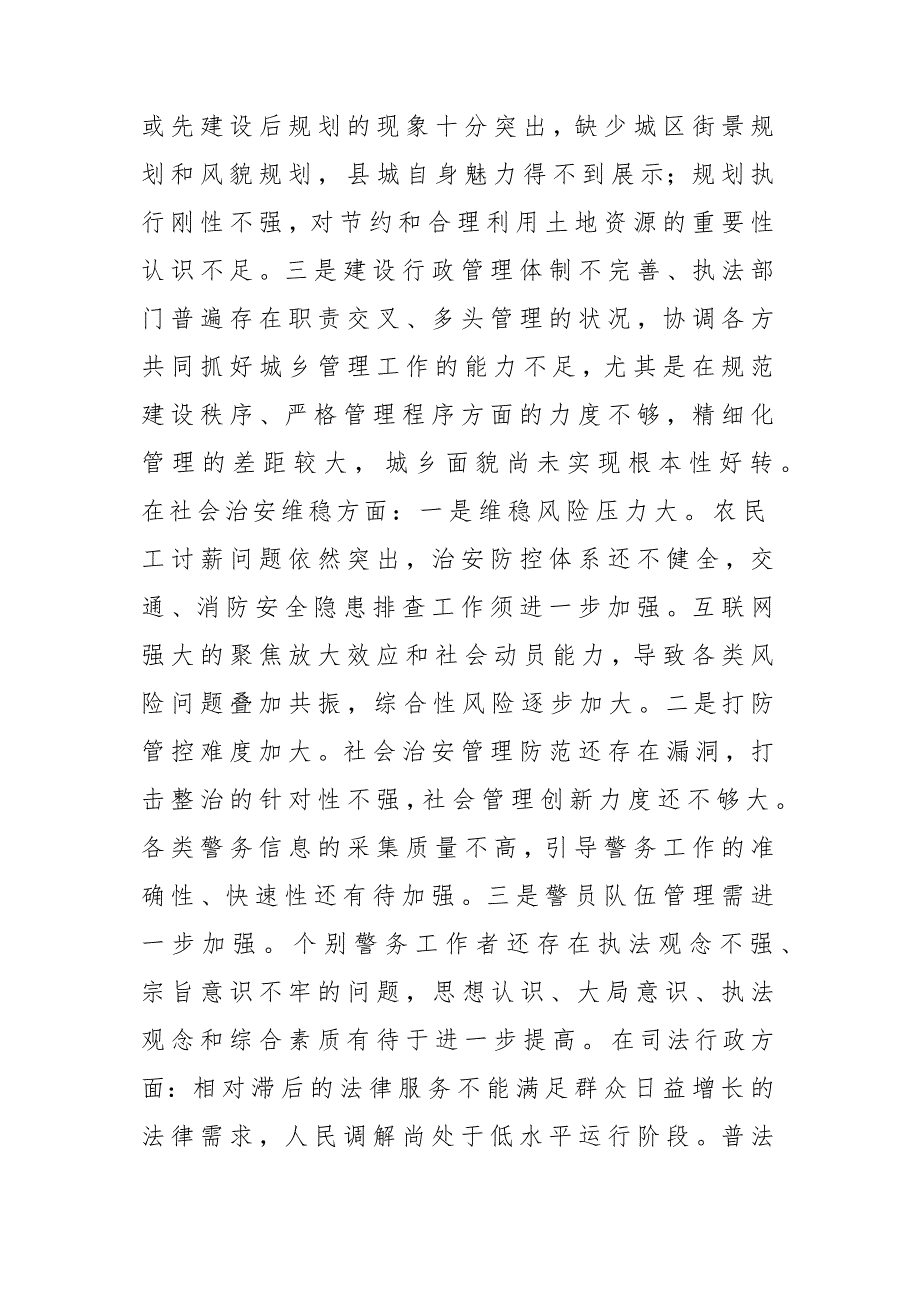 或先建设后规划的现象十分突出，缺少城区街景规
划和风貌规划，县城自身魅力得不到展示；规划执
行刚性不强，对节约和合理利用土地资源的重要性
认识不足。三是建设行政管理体制不完善、执法部
门普遍存在职责交叉、多头管理的状况，协调各方
共同抓好城乡管理工作的能力不足，尤其是在规范
建设秩序、严格管理程序方面的力度不够，精细化
管理的差距较大，城乡面貌尚未实现根本性好转。
在社会治安维稳方面：一是维稳风险压力大。农民
工讨薪问题依然突出，治安防控体系还不健全，交
通、消防安全隐患排查工作须进一步加强。互联网
强大的聚焦放大效应和社会动员能力，导致各类风
险问题叠加共振，综合性风险逐步加大。二是打防
管控难度加大。社会治安管理防范还存在漏洞，打
击整治的针对性不强，社会管理创新力度还不够大。
各类警务信息的采集质量不高，引导警务工作的准
确性、快速性还有待加强。三是警员队伍管理需进
一步加强。个别警务工作者还存在执法观念不强、
宗旨意识不牢的问题，思想认识、大局意识、执法
观念和综合素质有待于进一步提高。在司法行政方
面：相对滞后的法律服务不能满足群众日益增长的
法律需求，人民调解尚处于低水平运行阶段。普法